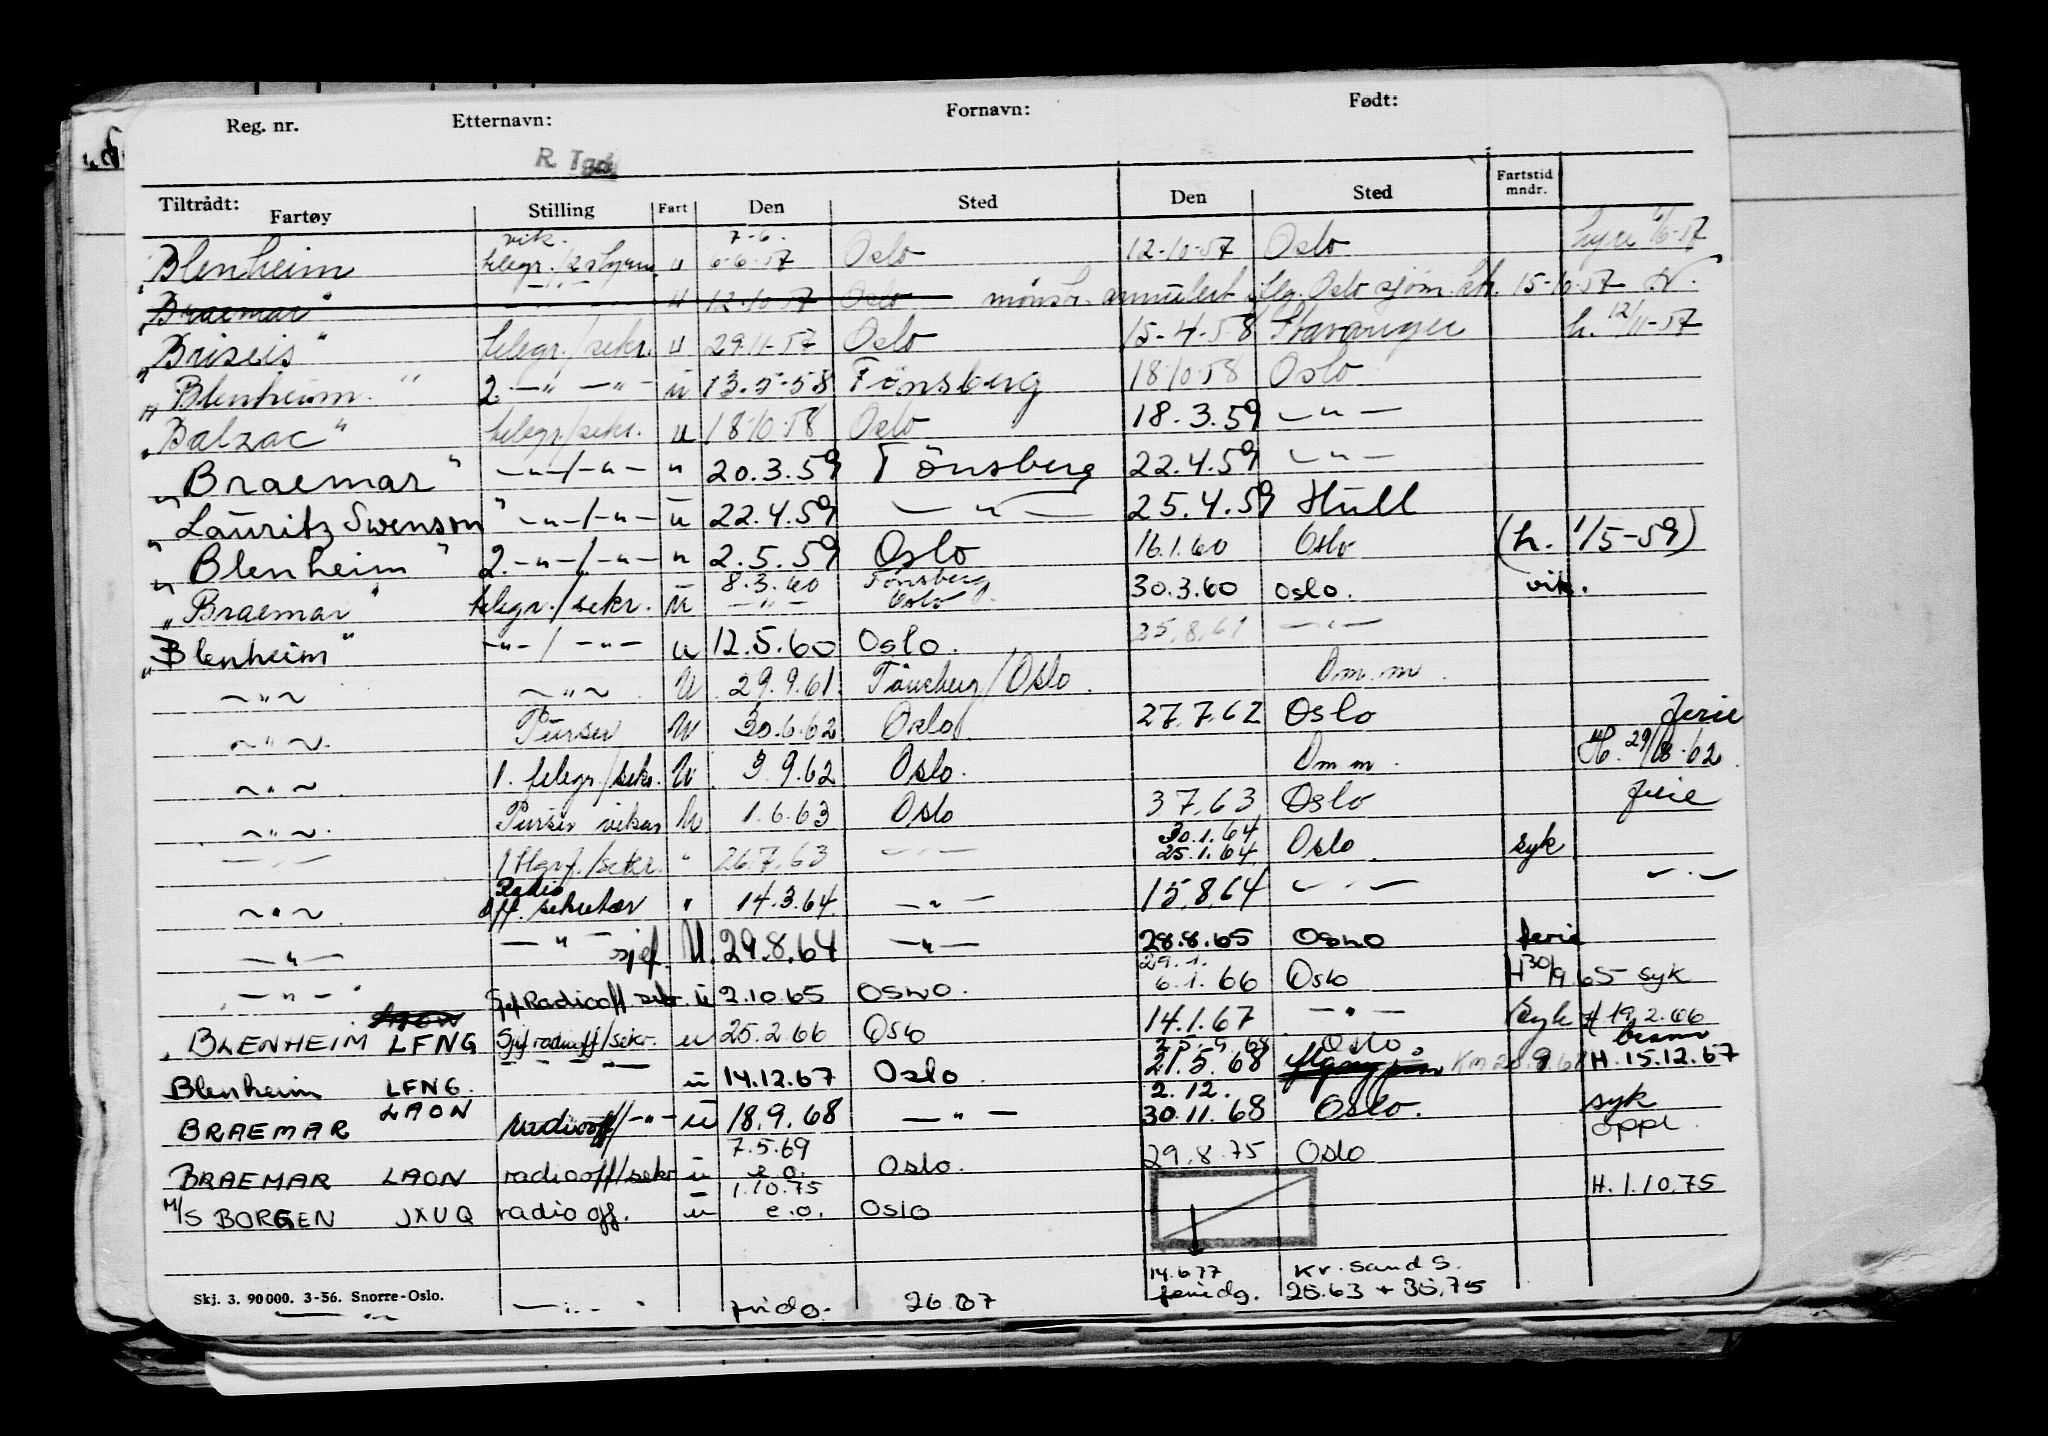 Reg. nr. Etternavn: Fornavn: Født:
R. Tgd.
Tiltrådt: Fartøy Stilling Fart Den Sted Den Sted Fartstid mndr.
vik. 7-6.
Blenheim telegr./2 styrm. u 6-6-57 Oslo 12-10-57 Oslo hyre 6/6-57
"Braemar" -"- u 12-10-57 Oslo mønstr. annulert iflg. Oslo sjøm.ktr. 15-10-57
"Briseis" telegr./sekr. u 29-11-57 Oslo 15-4-58 Stavanger h. 12/11-57
"Blenheim" 2. -"- -"- u 13-5-58 Tønsberg 18-10-58 Oslo
"Balzac" telegr./sekr. u 18-10-58 Oslo 18.3.59 -"-
"Braemar" -"-/-"- " 20.3.59 Tönsberg 22.4.59 -"-
"Lauritz Swenson" -"-/-"- u 22.4.59 -"- 25.4.59 Hull
"Blenheim" 2.-"-/-"- " 2.5.59 Oslo 16.1.60 Oslo (h. 1/5-59)
8.3.60 Tönsberg
"Braemar" telegr./sekr. u -"- Oslo 30.3.60 Oslo. vik.
"Blenheim" -"-/-"- u 12.5.60 Oslo. 25.8.61 -"-
-"- -"- U 29.9.61. Tönsberg/Oslo. Om.m.
-"- Purser U 30.6.62 Oslo 27.7.62 Oslo ferie
-"- 1. telegr./sekr. U 3.9.62 Oslo. Om m. H. 29/8-62.
-"- Purser vikar U 1.6.63 Oslo 3.7.63 Oslo ferie
30.1.64
-"- 1 tlgrf./sekr. " 26.7.63 -"- 25.1.64 Oslo syk
Radio
-"- off. sekretær " 14.3.64 -"- 15.8.64 -"- -"-
-"- -"- sjef. U. 29.8.64 -"- 28.8.65 Oslo ferie
29.1.
-"- Sjef Radiooff. sekr. u 2.10.65 Oslo. 6.1.66 Oslo H 30/9 65 - syk
BLENHEIM LFNG Sjef radiooff/sekr. u 25.2.66 Oslo 14.1.67 -"- Syk H 19.2.66
25.9.68 Oslo brann
Blenheim LFNG. -"- u 14.12.67 Oslo. 21.5.68 H. 15.12.67
2.12.
BRAEMAR LAON radiooff/-"- u 18.9.68 -"- 30.11.68 Oslo. syk
7.5.69 oppl.
BRAEMAR LAON radiooff/sekr u e.o. Oslo. 29.8.75 Oslo
1.10.75
M/S BORGEN JXUQ radio off. u e.o. Oslo H. 1.10.75
14.6.77 Kr.sand S.
feriedg. 25.63 + 35,75
Skj. 3. 90 000. 3-56. Snorre-Oslo.
fridg. 26.07